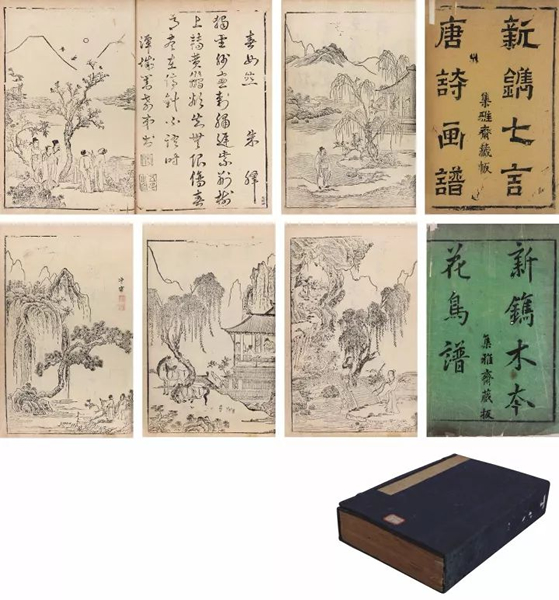 春女怨 朱絳
獨坐紗窗刺繡遲紫荊枝
上囀黃鸝欲知無限傷春
意盡在停針不語時
新鐫七言
唐詩画譜
集雅齋藏板
新鐫木本
花鳥譜
集雅齋藏板